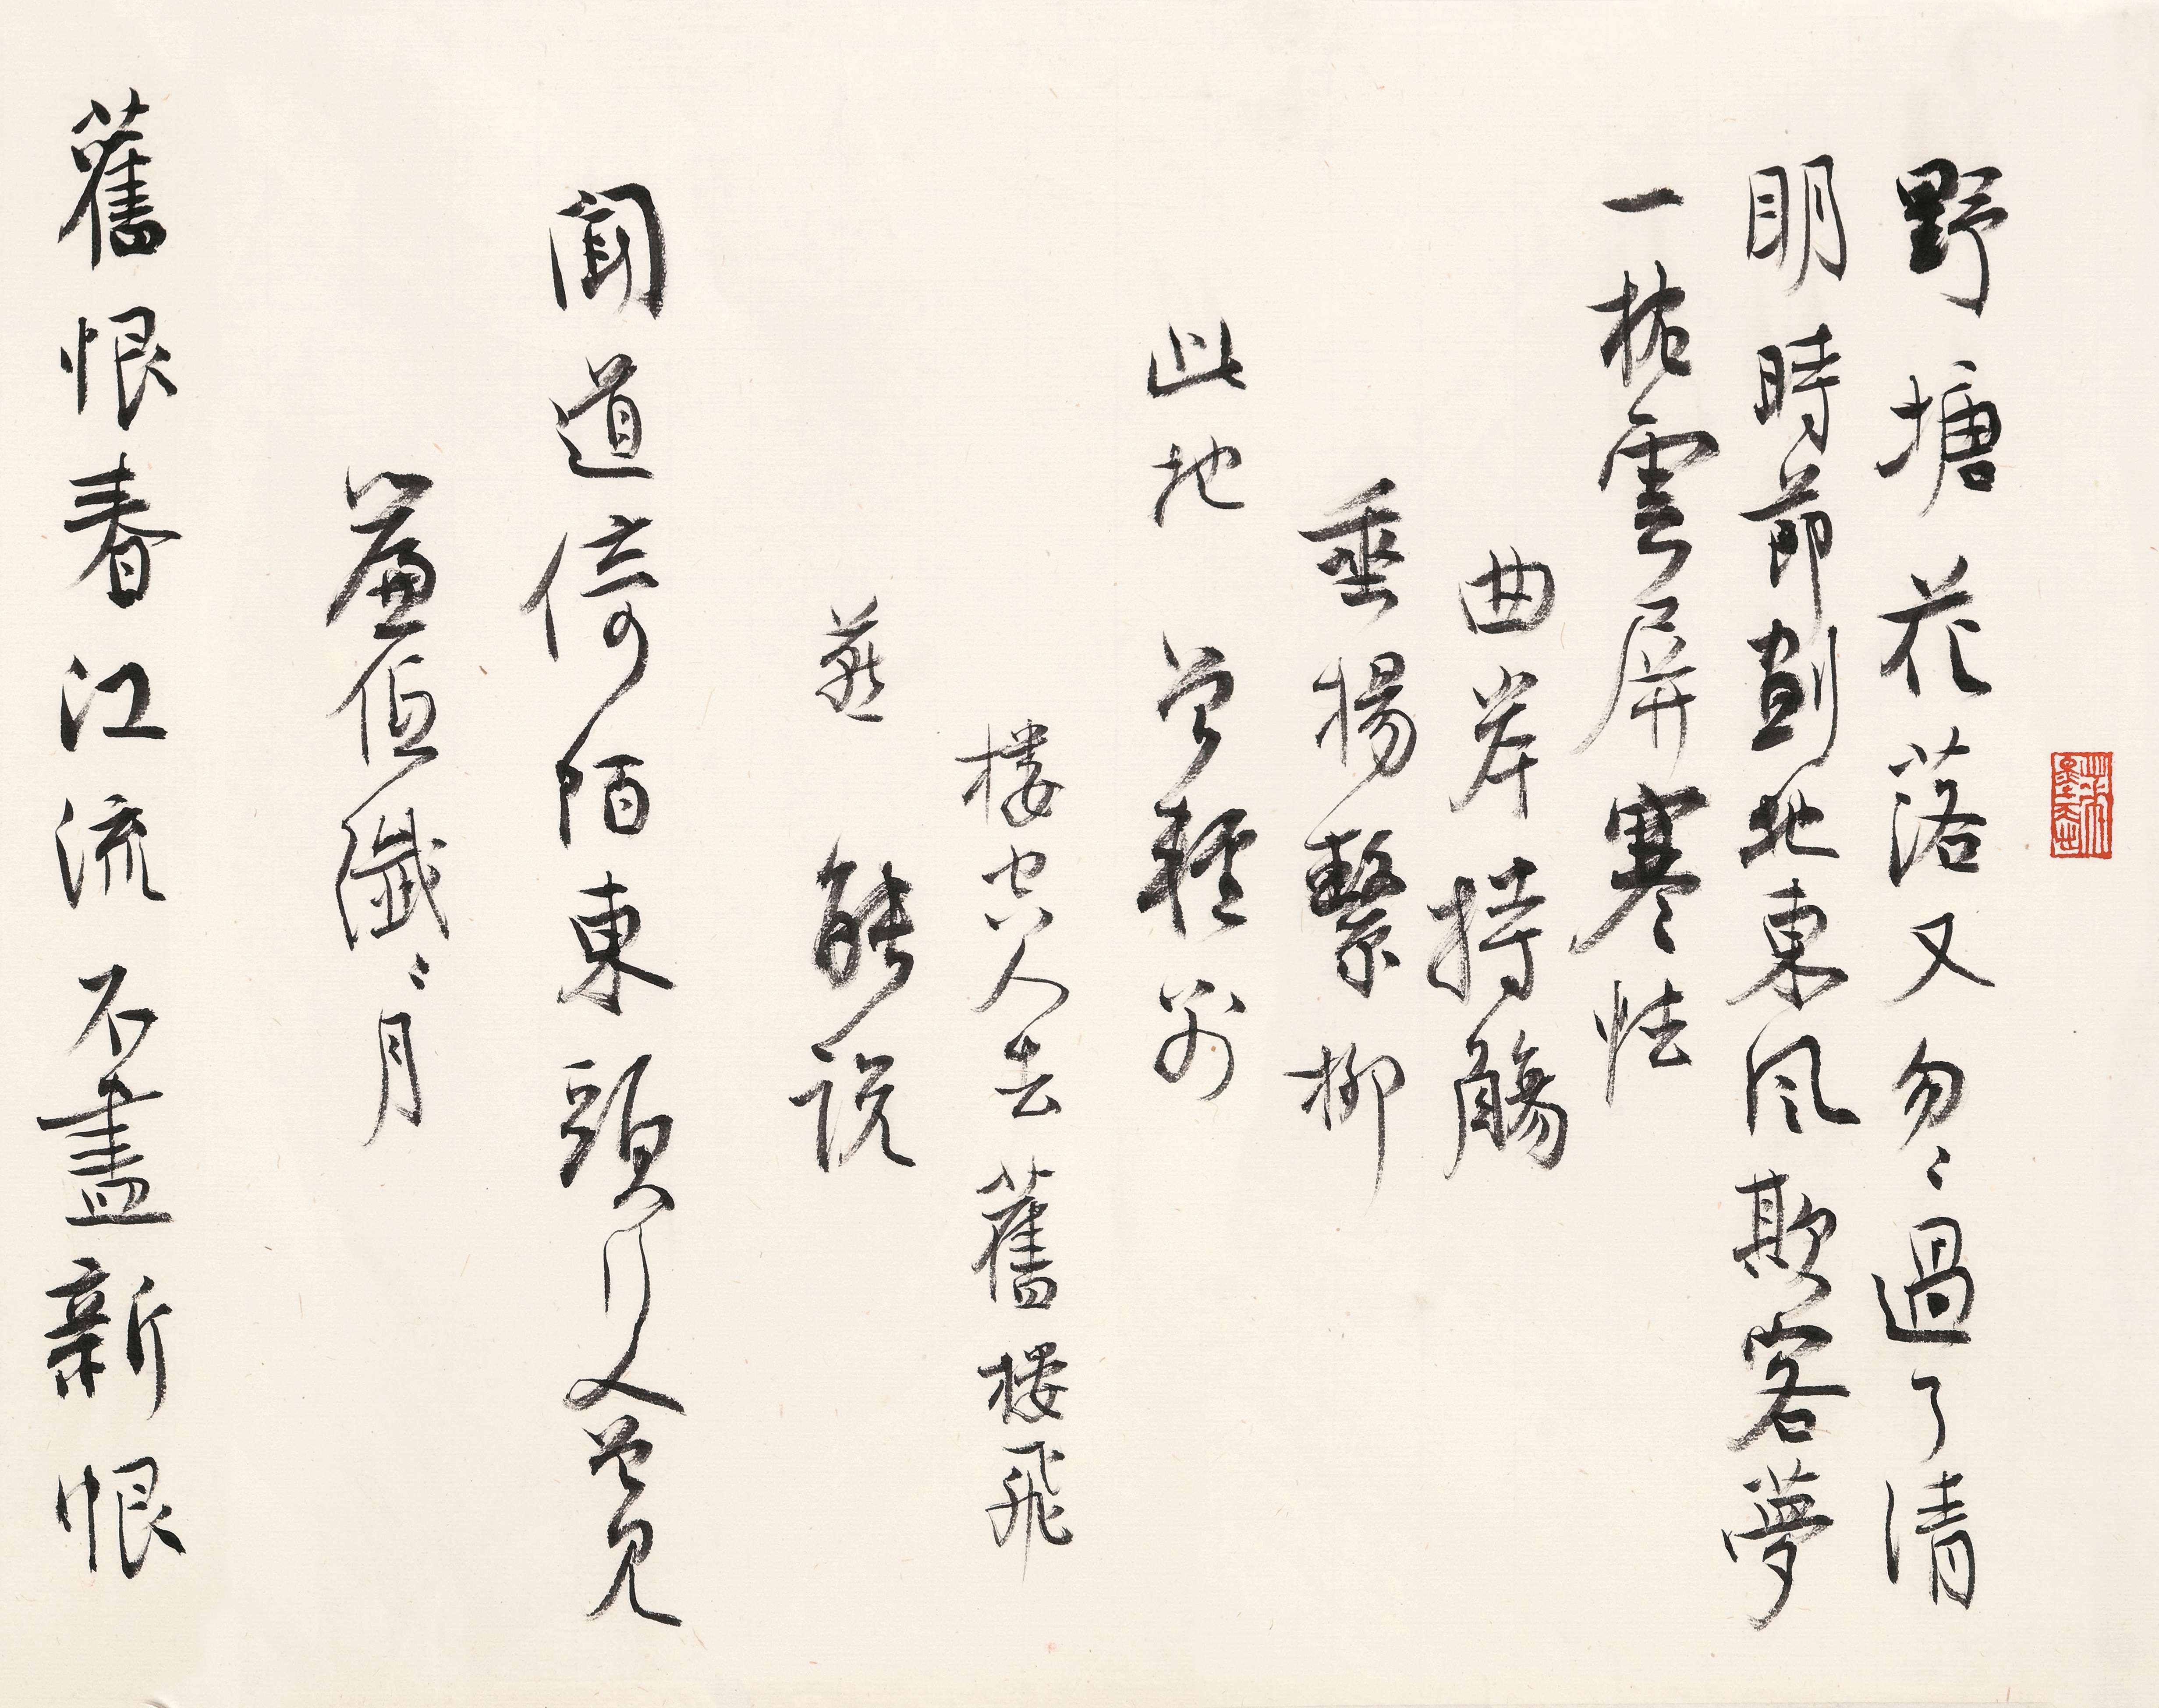 野塘花落又匆〻過了清
明時節劃地東風欺客夢
一枕雲屏寒怯
曲岸持觴
垂楊繫柳
此地曾輕別
楼空人去舊楼飛
燕能説
聞道倚陌東頭行人曾見
簾低纖〻月
舊恨春江流不盡新恨